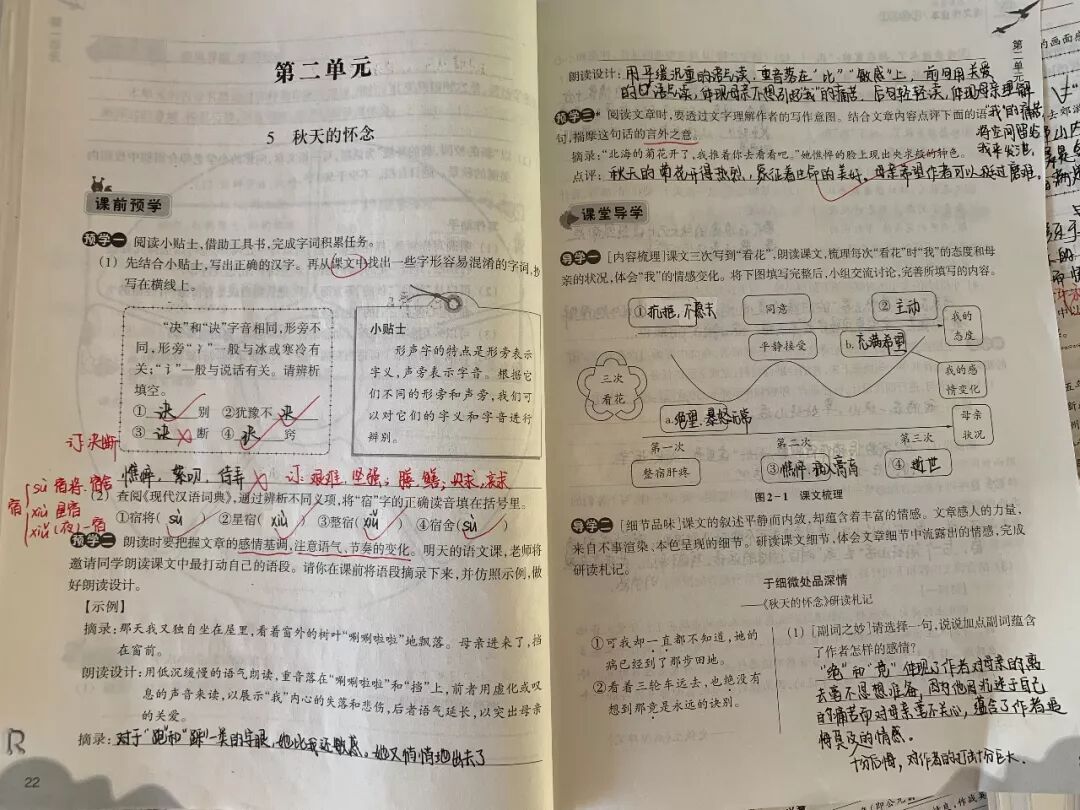 第二单元
5 秋天的怀念
课前预学
预学一 阅读小贴士,借助工具书,完成字词积累任务。
(1) 先结合小贴士,写出正确的汉字。再从课文中找出一些字形容易混淆的字词,抄
写在横线上。
“决”和“诀”字音相同,形旁不
同,形旁“冫”一般与冰或寒冷有
关;“讠”一般与说话有关。请辨析
填空。
① 诀 别 ②犹豫不 决
③ 诀 断 ④ 诀 窍
小贴士
形声字的特点是形旁表示
字义,声旁表示字音。根据它
们不同的形旁和声旁,我们可
以对它们的字义和字音进行
辨别。
订决断
憔悴,絮叨,侍弄 订:艰难,坚强;
(2) 查阅《现代汉语词典》,通过辨析不同义项,将“宿”字的正确读音填在括号里。
①宿将( sù ) ②星宿( xiù ) ③整宿( xiǔ ) ④宿舍( sù )
宿 sù 宿将 宿舍
xiù 星宿
xiǔ (夜)一宿
预学二 朗读时要把握文章的感情基调,注意语气、节奏的变化。明天的语文课,老师将
邀请同学朗读课文中最打动自己的语段。请你在课前将语段摘录下来,并仿照示例,做
好朗读设计。
【示例】
摘录:那天我又独自坐在屋里,看着窗外的树叶“唰唰啦啦”地飘落。母亲进来了,挡
在窗前。
朗读设计:用低沉缓慢的语气朗读,重音落在“唰唰啦啦”和“挡”上,前者用虚化或叹
息的声音来读,以展示“我”内心的失落和悲伤,后者语气延长,以突出母亲
的关爱。
摘录:对于“跑”和“踩”一类的字眼,她比我还敏感。她又悄悄地出去了
R
22
第二单元
朗读设计:用平缓沉重的语气读,重音落在“比”“敏感”上,前句用关爱
的口语气读,体现母亲不想引起“我”的痛苦,后句轻轻读,体现母亲理解
“我”的痛苦
将空间留给
我来发泄。
预学三 阅读文章时,要透过文字理解作者的写作意图。结合文章内容点评下面的语
句,揣摩这句话的言外之意。
摘录:“北海的菊花开了,我推着你去看看吧。”她憔悴的脸上现出央求般的神色。
点评:秋天的菊花开得热烈,象征着生命的美好,母亲希望作者可以挺过磨难。
课堂导学
导学一 [内容梳理]课文三次写到“看花”,朗读课文,梳理每次“看花”时“我”的态度和母
亲的状况,体会“我”的情感变化。将下图填写完整后,小组交流讨论,完善所填写的内容。
①抗拒,不愿去
同意
② 主动
我的
态度
平静接受
b. 充满希望
三次
看花
我的感
情变化
a. 绝望,暴怒无常
母亲
状况
第一次
第二次
第三次
整宿肝疼
③憔悴
④ 逝世
图2-1 课文梳理
导学二 [细节品味]课文的叙述平静而内敛,却蕴含着丰富的情感。文章感人的力量,
来自不事渲染、本色呈现的细节。研读课文细节,体会文章细节中流露出的情感,完成
研读札记。
于细微处品深情
——《秋天的怀念》研读札记
①可我却一直都不知道,她的
病已经到了那步田地。
②看着三轮车远去,也绝没有
想到那竟是永远的诀别。
(1) [副词之妙]请选择一句,说说加点副词蕴含
了作者怎样的感情?
“绝”和“竟”体现了作者对母亲的离
去毫不思想准备,因为他因沉迷于自己
的痛苦而对母亲毫不关心,蕴含了作者追
悔莫及的情感。
十分后悔,对作者的打击十分巨大.